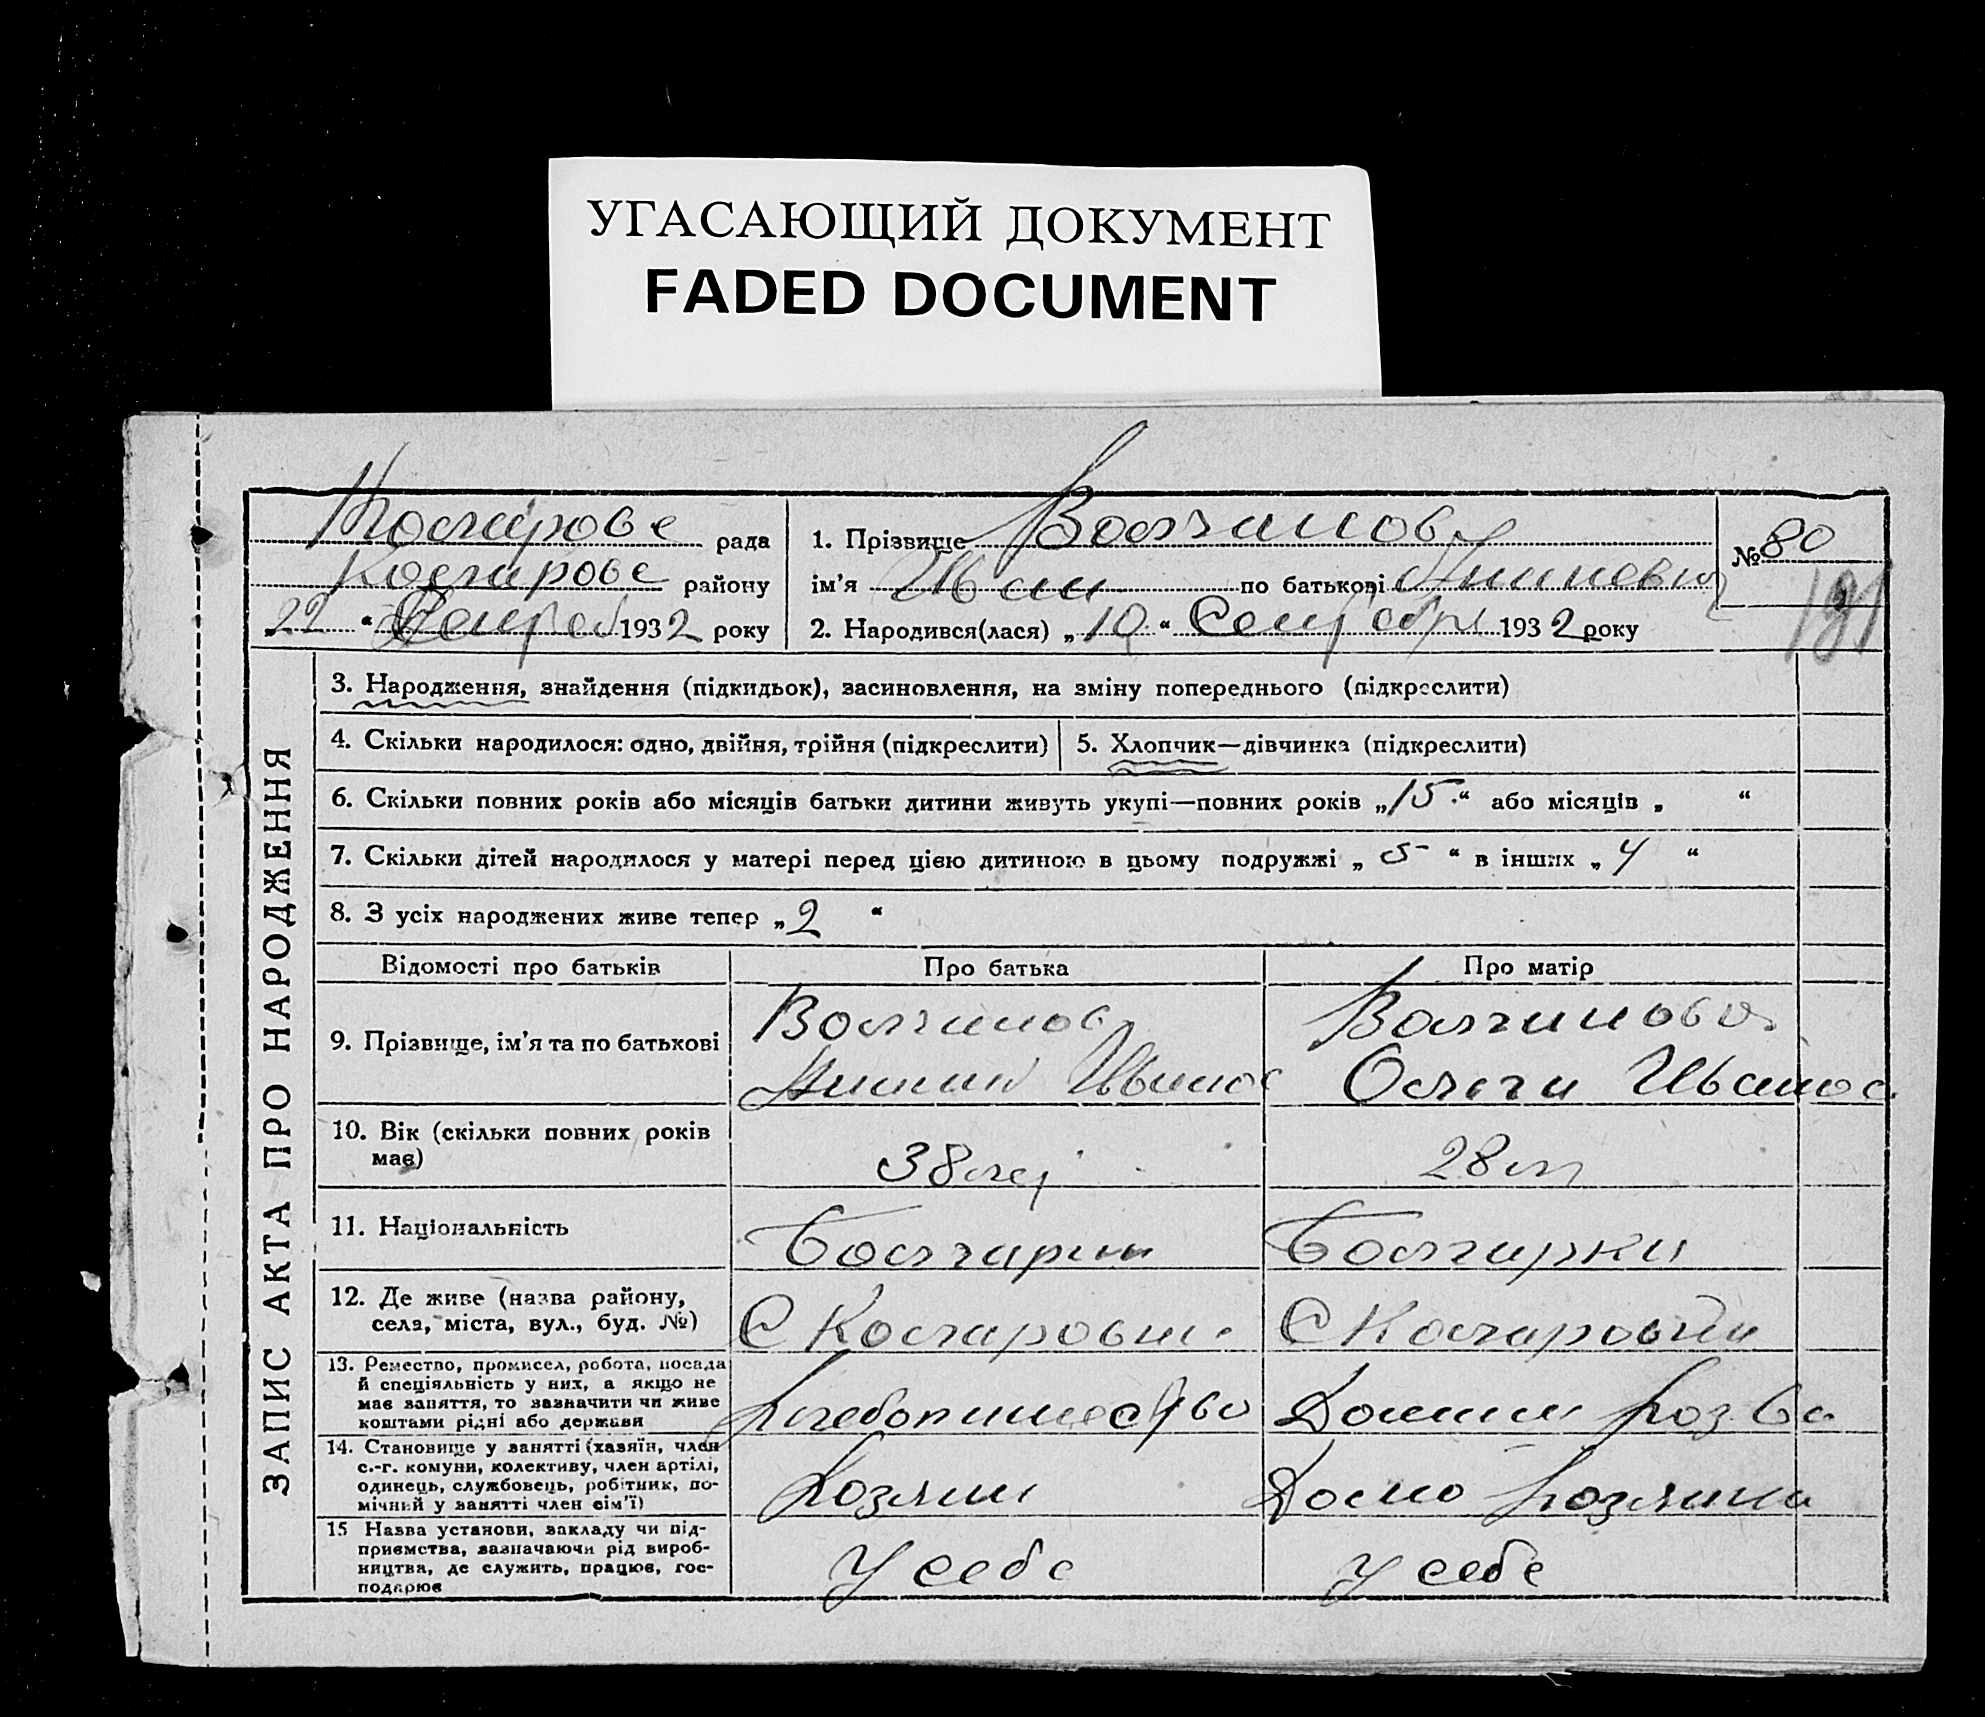 УГАСАЮЩИЙ ДОКУМЕНТ
FADED DOCUMENT
Коларове рада
Коларове району
22 “ 1932 року
1. Прізвище Волчанов
ім’я Иван по батькові
2. Народився(лася) „10“ Сентября 1932 року
№ 80
191
ЗАПИС АКТА ПРО НАРОДЖЕННЯ
3. Народження, знайдення (підкидьок), засиновлення, на зміну попереднього (підкреслити)
4. Скільки народилося: одно, двійня, трійня (підкреслити)
5. Хлопчик—дівчинка (підкреслити)
6. Скільки повних років або місяців батьки дитини живуть укупі—повних років „15“ або місяців „ “
7. Скільки дітей народилося у матері перед цією дитиною в цьому подружжі „5“ в інших „4“
8. З усіх народжених живе тепер „2“
Відомості про батьків
Про батька
Про матір
9. Прізвище, ім’я та по батькові
Волчанов
Иванов
Волчанова
Ольга Иванов
10. Вік (скільки повних років
має)
38 лет
28 л
11. Національність
Болгарин
Болгарка
12. Де живе (назва району,
села, міста, вул., буд. №)
С Коларовки
С Коларовки
13. Ремество, промисел, робота, посада
й спеціяльність у них, а якщо не
має заняття, то зазначити чи живе
коштами рідні або держави
Хлебопашество
Домаш хоз ва
14. Становище у занятті (хазяїн, член
с.-г. комуни, колективу, член артілі,
одинець, службовець, робітник, по-
мічний у занятті член сім’ї)
Хозяин
Домо хозяика
15 Назва установи, закладу чи під-
приємства, зазначаючи рід вироб-
ництва, де служить, працює, гос-
подарює
У себе
У себе